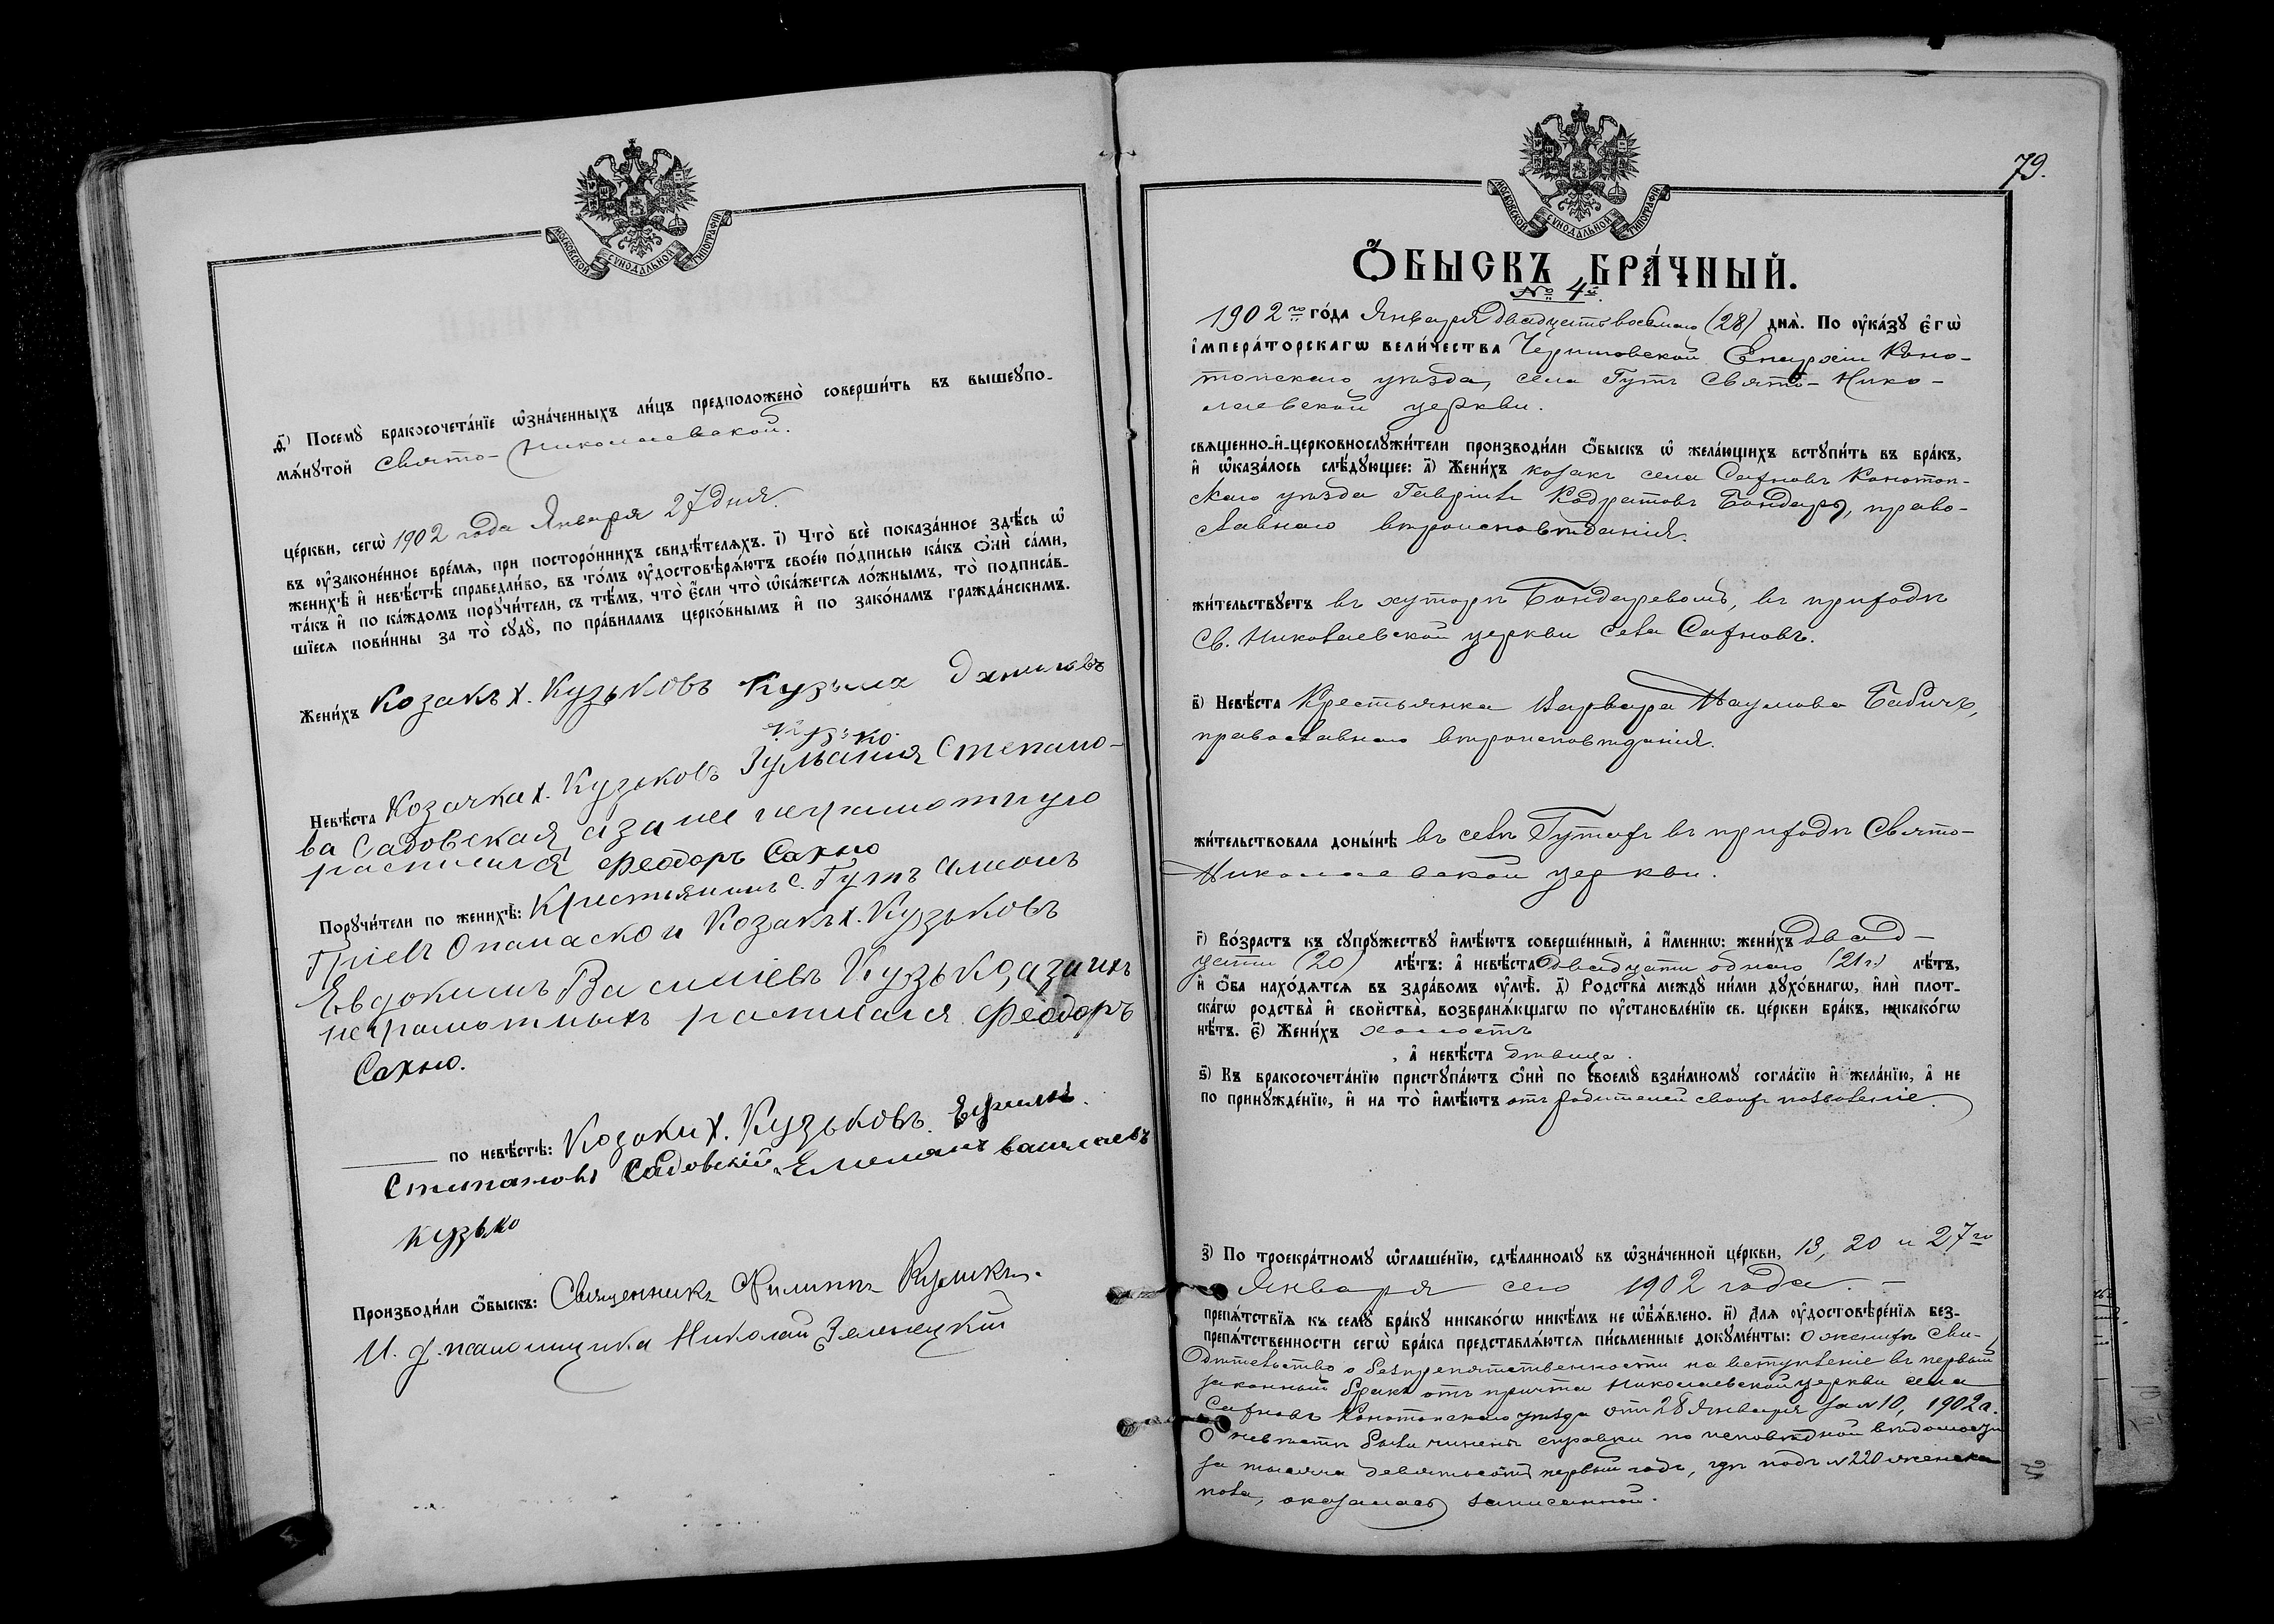 МОСКОВСКОЙ СУНОДАЛЬНОЙ ТИПОГРАФІИ
д҃) Посемꙋ̀ бракосочета́нїе ѡ҆зна́ченныхъ ли́цъ предположено̀ соверши́ть въ вышеꙋпо-
мѧ́нꙋтой Свято-Николаевской.
це́ркви, сегѡ̀ 1902 года Января 27 дня
въ ᲂу҆законе́нное вре́мѧ, при посторо́ннихъ свидѣ́телѧхъ. і҃) Что̀ всѐ показа́нное здѣ́сь ѡ҆
женихѣ̀ и҆ невѣ́стѣ справедли́во, въ то́мъ ᲂу҆достовѣрѧ́ютъ свое́ю по́дписью ка́къ ѻ҆нѝ са́ми,
та́къ и҆ по ка́ждомъ порꙋчи́тели, съ тѣ́мъ, что̀ є҆́сли что̀ ѡ҆ка́жетсѧ ло́жнымъ, то̀ подписа́в-
шїесѧ пови́нны за то̀ сꙋдꙋ̀, по пра́виламъ церко́внымъ и҆ по зако́намъ гражда́нскимъ.
Жени́хъ Козакъ х. Кузьковъ Кузьма Даниловъ
Кузько.
Невѣ́ста Козачка х. Кузьковъ Іульанія Степано-
ва Садовская, а за нее неграмотную
росписился Феодоръ Сахно
Порꙋчи́тели по женихѣ̀: Кристьянинъ с. Гутъ
Опанаско и Козакъ х. Кузьковъ
Евдокимъ Василіевъ Кузько, а за ихъ
неграмотныхъ росписался Феодоръ
Сахно.
по невѣ́стѣ: Козаки х. Кузьковъ Ефимъ
Стипановъ Садовскій
Кузько
Производи́ли ѻ҆́быскъ: Священникъ Филиппъ Куликъ.
И. д. псаломщика Николай Зеленецкій
79.
МОСКОВСКОЙ СУНОДАЛЬНОЙ ТИПОГРАФІИ
Ѻ҆́БЫСКЪ БРА́ЧНЫЙ.
№ 4й.
1902го го́да Января двадцать восьмаго (28) днѧ̀. По ᲂу҆ка́зꙋ є҆гѡ̀
і҆мпера́торскагѡ вели́чества Черниговской Епархіи Коно-
топскаго уѣзда, села Гутъ Свято-Нико-
лаевской церкви.
свѧщенно-и҆-церковнослꙋжи́тели производи́ли ѻ҆́быскъ ѡ҆ жела́ющихъ встꙋпи́ть въ бра́къ,
и҆ ѡ҆каза́лось слѣ́дꙋющее: а҃) Жени́хъ козакъ села Сахновъ Конотоп-
скаго уѣзда Гавріилъ Кодратовъ Бондарь, право-
славнаго вѣроисповѣданія.
жи́тельствꙋетъ въ хуторѣ Бондаревомъ, въ приходѣ
Св. Николаевской церкви села Сахновъ.
в҃) Невѣ́ста Крестьянка Варвара Наумова Бабичъ,
православнаго вѣроисповѣданія.
жи́тельствовала доны́нѣ въ селѣ Гутахъ въ приходѣ Свято-
Николаевской церкви.
г҃) Во́зрастъ къ сꙋпрꙋ́жествꙋ и҆мѣ́ютъ соверше́нный, а҆ и҆́менно: жени́хъ двад-
цати (20) лѣ́тъ: а҆ невѣ́ста двадцати одного (21 г.) лѣ́тъ,
и҆ ѻ҆́ба нахо́дѧтсѧ въ здра́вомъ ᲂу҆мѣ̀. д҃) Родства̀ между ни́ми дꙋхо́внагѡ, и҆лѝ плот-
ска́гѡ родства̀ и҆ сво́йства, возбранѧ́ющагѡ по ᲂу҆становле́нїю св. це́ркви бра́къ, никако́гѡ
нѣ́тъ. є҃) Жени́хъ холостъ
, а҆ невѣ́ста дѣвица.
ѕ҃) Къ бракосочета́нїю пристꙋпа́ютъ ѻ҆нѝ по своемꙋ̀ взаи́мномꙋ согла́сїю и҆ жела́нїю, а҆ не
по принꙋжде́нїю, и҆ на то̀ и҆мѣ́ютъ отъ родителей своихъ позволеніе.
з҃) По троекра́тномꙋ ѡ҆глаше́нїю, сдѣ́ланномꙋ въ ѡ҆зна́ченной це́ркви, 13, 20 и 27го
Января сего 1902 года. —
препѧ́тствїѧ къ семꙋ̀ бра́кꙋ никако́гѡ никѣ́мъ не ѡ҆б̾ѧ́влено. и҃) Для ᲂу҆достовѣре́нїѧ без-
препѧ́тственности сегѡ̀ бра́ка представлѧ́ютсѧ пи́сьменные докꙋме́нты: о женихѣ сви-
дѣтельство о безпрепятственности на вступленіе въ первый
законный бракъ отъ причта Николаевской церкви села
Сахновъ Конотопскаго уѣзда отъ 28 Января за №10, 1902 г.
О невѣстѣ были чинены справки по исповѣдной вѣдомости
за тысяча девятьсотъ первый годъ, гдѣ подъ №220 женска
пола, оказалась записанной.